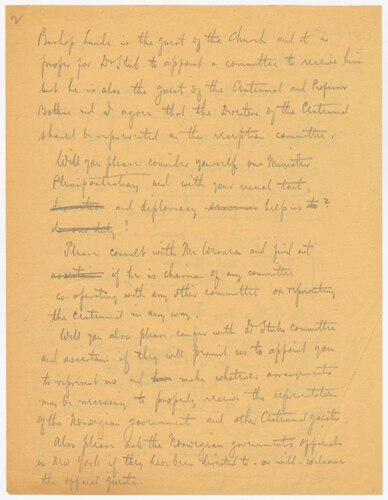 2
Bishop Lunde is the guest of the Church and it is
proper for Dr Stub to appoint a committee to receive him
but he is also the guest of the Centennial and Professor
Bothne and I agree that the Directors of the Centennial
should be represented on the reception committee.
Will you please consider yourself our Minister
Plenipotentiary and with your usual tact,
and diplomacy help us to?
do our duty!
Please consult with Mr Wermer and find out
ascertain if he is chairman of any committee
co-operating with any other committee or representing
the Centennial in any way.
Will you also please confer with Dr Stubs Committee
and ascertain if they will permit us to appoint you
to represent us and make whatever arrangements
may be necessary to properly receive the representatives
of the Norwegian government and other Centennial guests.
Also please ask the Norwegian governments officials
in New York if they have been directed to - or will - welcome
the official guests.